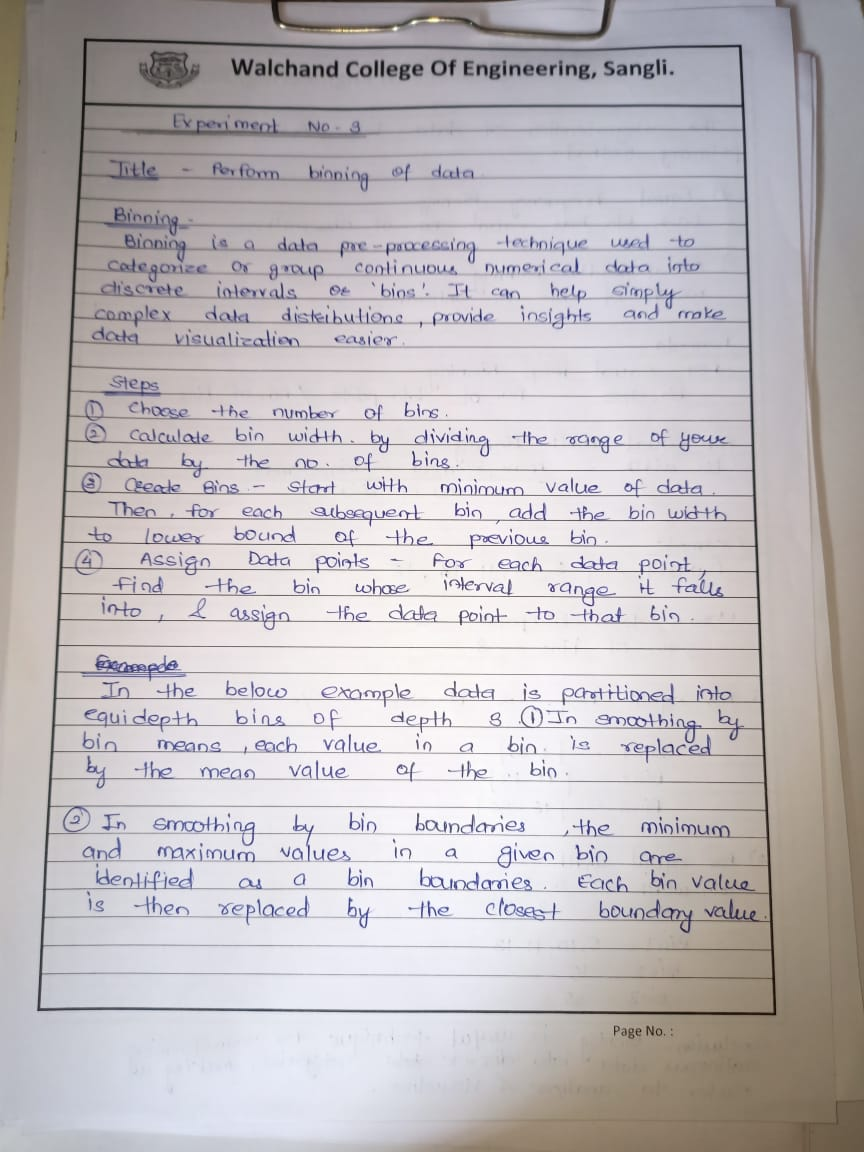 Walchand College Of Engineering, Sangli.
Experiment No - 3
Title - Perform binning of data
Binning -
Binning is a data pre-processing technique used to
categorize or group continuous numerical data into
discrete intervals or 'bins'. It can help simply
complex data distributions, provide insights and make
data visualization easier.
Steps
① Choose the number of bins.
② Calculate bin width. by dividing the range of your
data by the no. of bins.
③ Create Bins - Start with minimum value of data.
Then, for each subsequent bin, add the bin width
to lower bound of the previous bin.
④ Assign Data points - For each data point,
find the bin whose interval range it falls
into, & assign the data point to that bin.
In the below example data is partitioned into
equidepth bins of depth 3 ① In smoothing by
bin means, each value in a bin is replaced
by the mean value of the bin.
② In smoothing by bin boundaries, the minimum
and maximum values in a given bin are
identified as a bin boundaries. Each bin value
is then replaced by the closest boundary value.
Page No. :